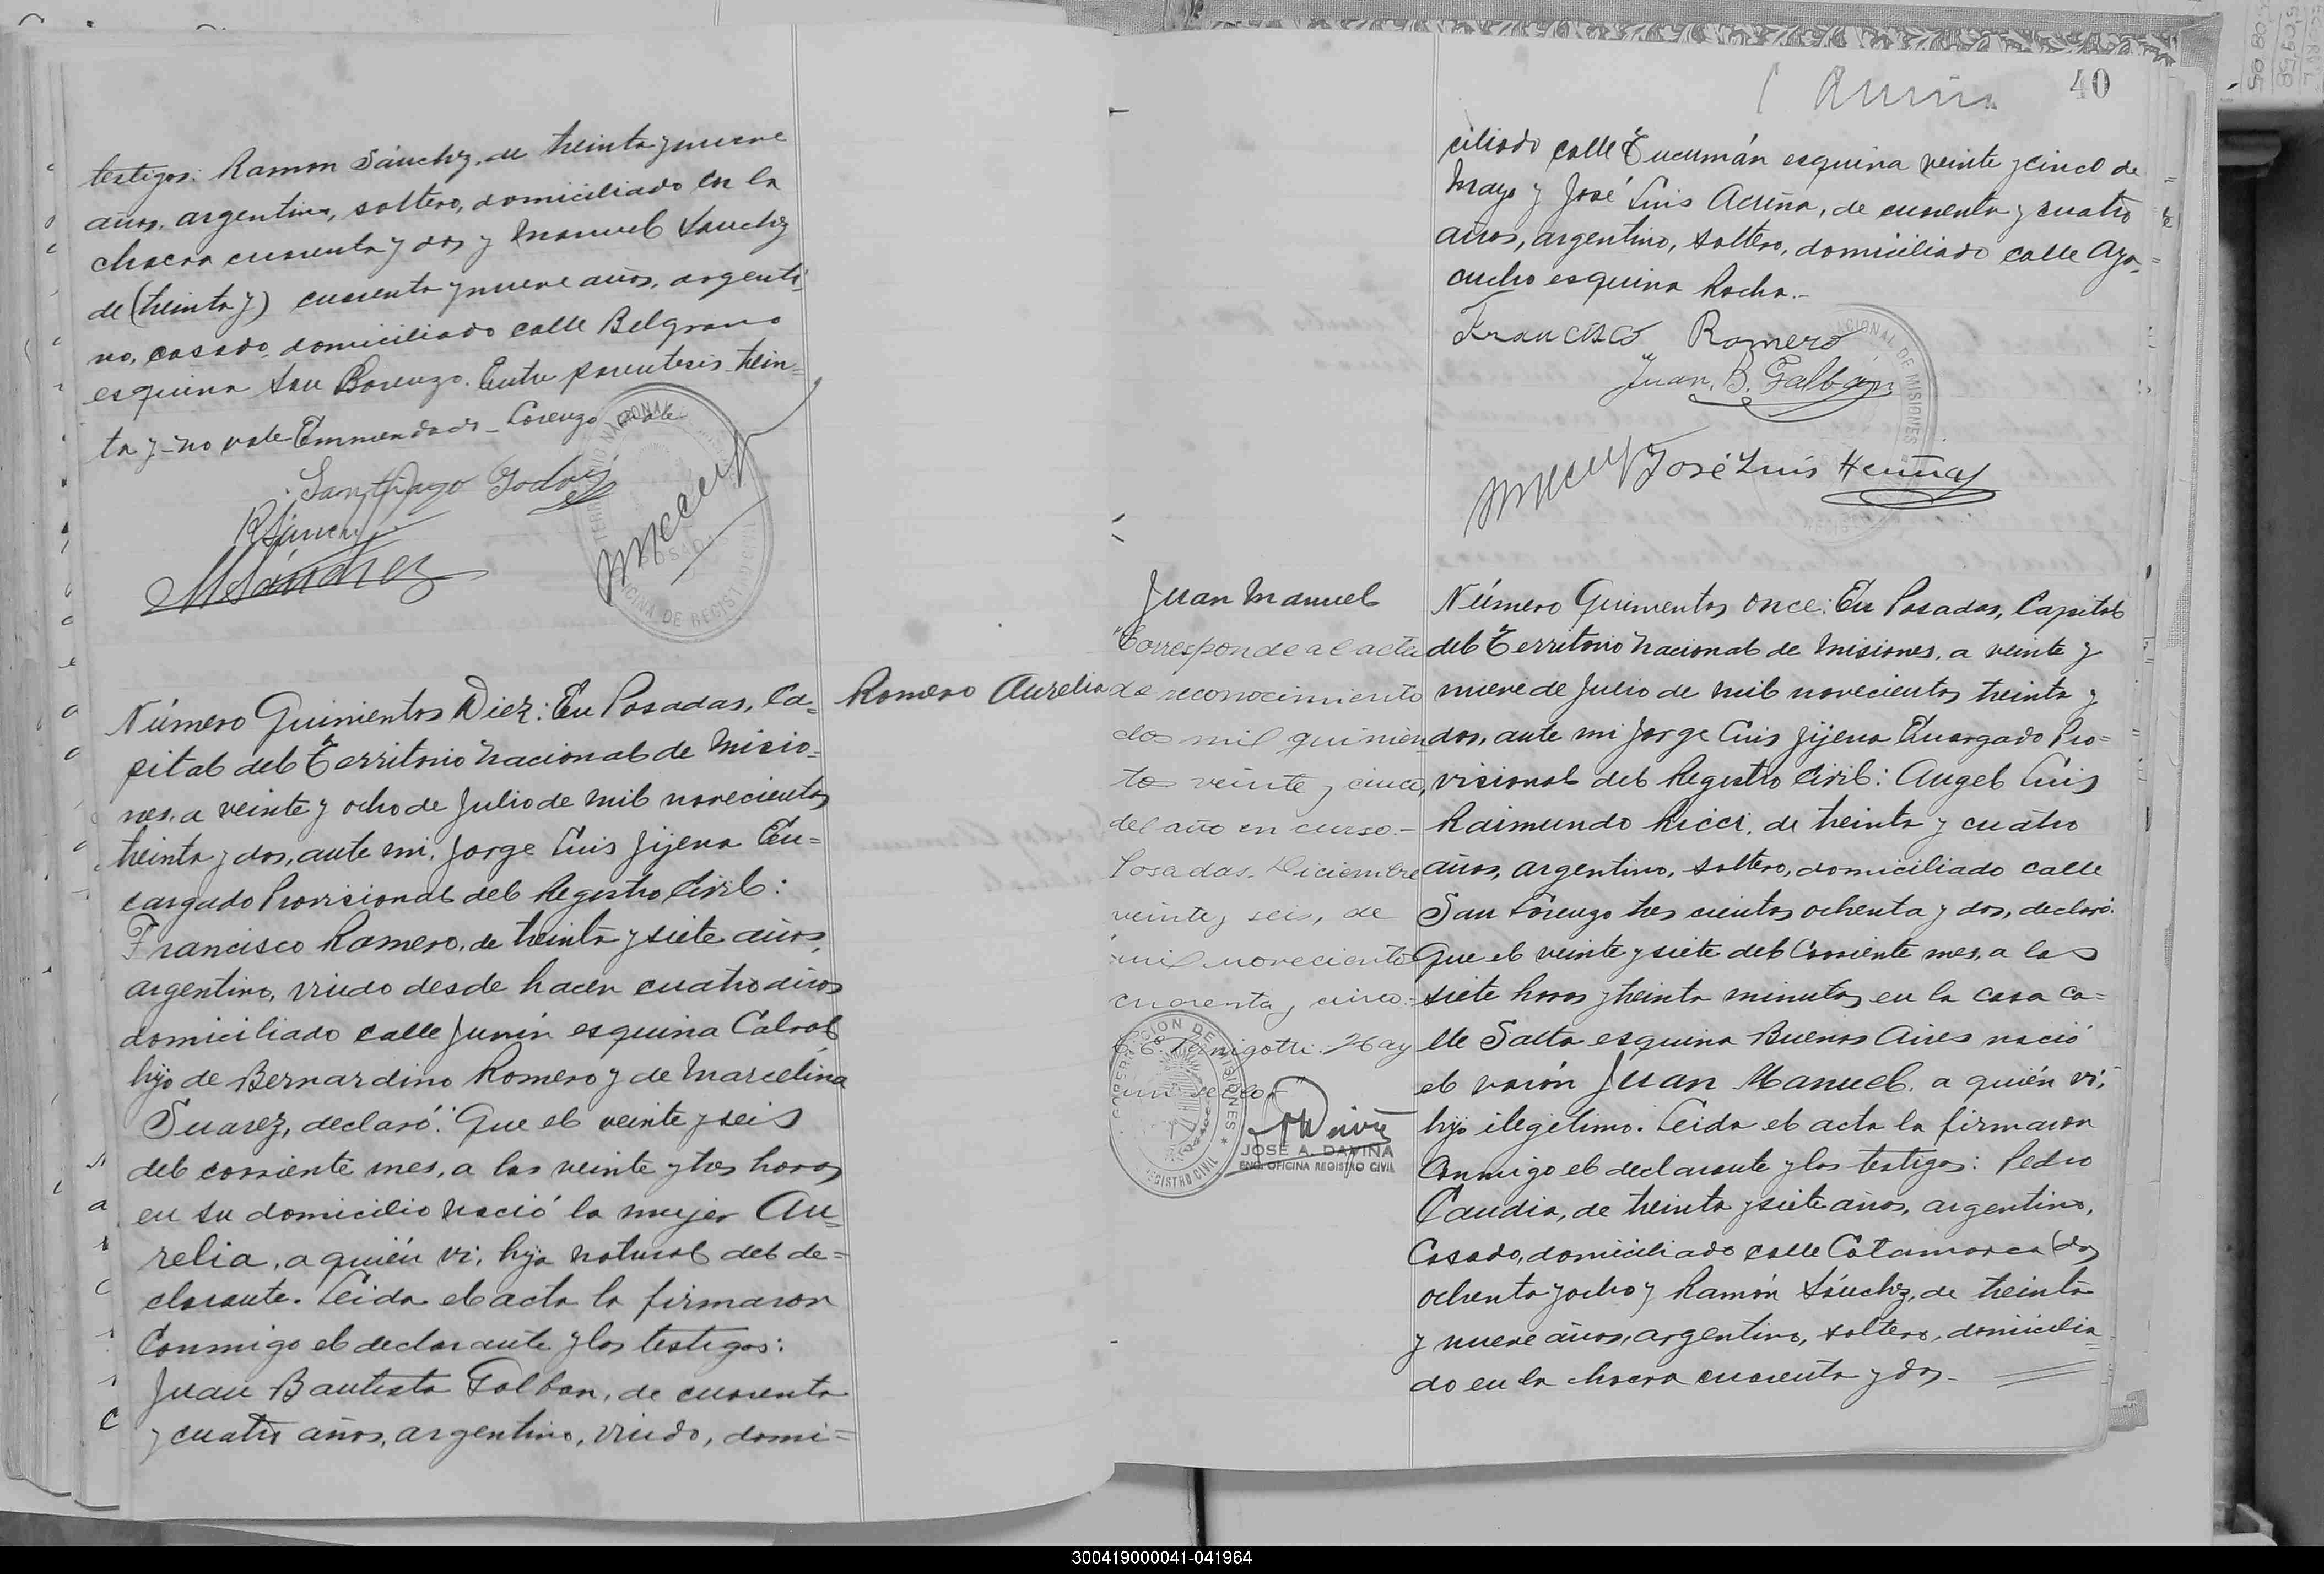 testigos: Ramon Sánchez, de treinta y nueve
años, argentino, soltero, domiciliado en la
chacra cuarenta y dos y Manuel Sanchez
de (treinta y) cuarenta y nueve años, argenti-
no, casado, domiciliado calle Belgrano
esquina San Lorenzo. Entre parentesis trein-
ta y - no vale Enmendado - Lorenzo vale
Santiago Godoy
R Sánchez
M Sánchez
OFICINA DE REGISTRO CIVIL
Romero Aurelia
Número Quinientos Diez: En Posadas, Ca-
pital del Territorio Nacional de Misio-
nes, a veinte y ocho de Julio de mil novecientos
treinta y dos, ante mi, Jorge Luis Jijena En-
cargado Provisional del Registro Civil:
Francisco Romero, de treinta y siete años,
argentino, viudo desde hacen cuatro años
domiciliado calle Junín esquina Cabral
hijo de Bernardino Romero y de Marcelina
Suarez, declaró: Que el veinte y seis
del corriente mes, a las veinte y tres horas
en su domicilio nació la mujer Au-
relia, a quién vi, hija natural del de-
clarante. Leida el acta la firmaron
Conmigo el declarante y los testigos:
Juan Bautista Galban, de cuarenta
y cuatro años, argentino, viudo, domi-
40
ciliado calle Tucumán esquina veinte y cinco de
Mayo y José Luis Acuña, de cuarenta y cuatro
años, argentino, soltero, domiciliado calle Aya-
cucho esquina Rocha.-
Francisco Romero
Juan B. Galbán
José Luis Acuña
Juan Manuel
"Corresponde al acta
de reconocimiento
dos mil quinien
tos veinte y cinco,
del año en curso.-
Posadas, Diciembre
veinte y seis, de
mil novecientos
cuarenta y cinco.-
Hay
un sello"
JOSE A. DAVIÑA
ENC. OFICINA REGISTRO CIVIL
Número Quinientos once: En Posadas, Capital
del Territorio Nacional de Misiones, a veinte y
nueve de Julio de mil novecientos treinta y
dos, ante mi Jorge Luis Jijena Encargado Pro-
visional del Registro Civil: Angel Luis
Raimundo Ricci, de treinta y cuatro
años, argentino, soltero, domiciliado calle
San Lorenzo tres cientos ochenta y dos, declaró:
Que el veinte y siete del Corriente mes, a las
siete horas y treinta minutos en la casa ca-
lle Salta esquina Buenos Aires nació
el varón Juan Manuel, a quién vi,
hijo ilegitimo. Leida el acta la firmaron
Conmigo el declarante y los testigos: Pedro
Candia, de treinta y siete años, argentino,
Casado, domiciliado calle Catamarca dos
ochenta y ocho y Ramón Sánchez, de treinta
y nueve años, argentino, soltero, domicilia-
do en la chacra cuarenta y dos.-
300419000041-041964